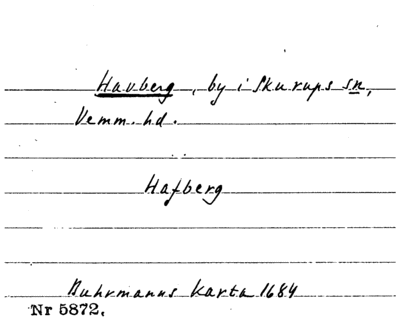 Hauberg, by i Skurups sn,
Vemm. hd.
Hafberg
Buhrmanns karta 1684
Nr 5872.